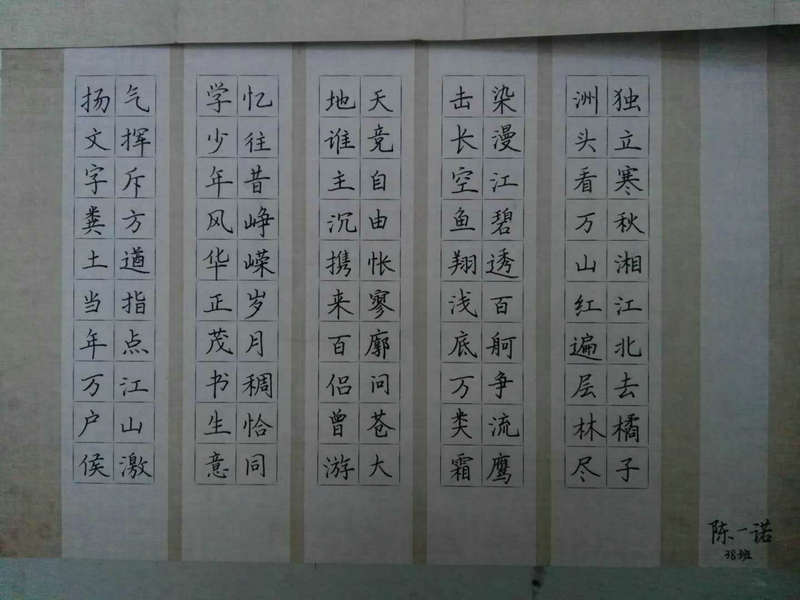 独立寒秋湘江北去橘子
洲头看万山红遍层林尽
染漫江碧透百舸争流鹰
击长空鱼翔浅底万类霜
天竞自由怅寥廓问苍大
地谁主沉携来百侣曾游
忆往昔峥嵘岁月稠恰同
学少年风华正茂书生意
气挥斥方遒指点江山激
扬文字粪土当年万户侯
陈一诺
38班